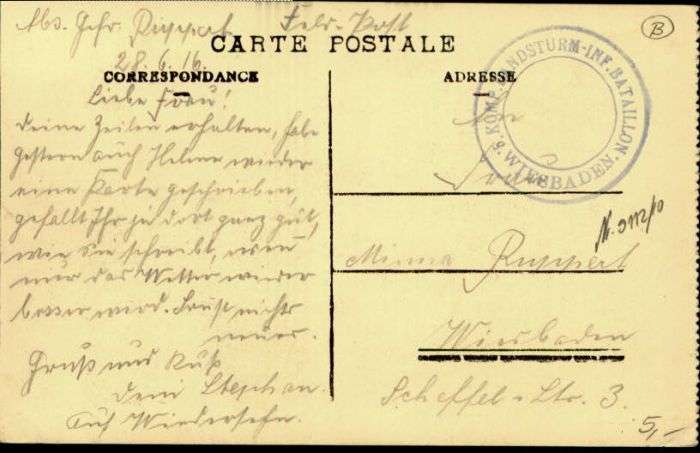 Abs. Gefr. Ruppert Feld-Post
CARTE POSTALE
28.6.16.
CORRESPONDANCE
Liebe Frau!
Deine Zeilen erhalten, habe
gestern auch Helene wieder
eine Karte geschrieben,
gefällt Ihr ja dort ganz gut,
wie sie schreibt, wenn
nur das Wetter wieder
besser wird. Sonst nichts
neues.
Gruß und Kuß
Dein Stephan.
Auf Wiedersehn.
ADRESSE
An
Frau
Minna Ruppert
Wiesbaden
Scheffel-Str. 3.
KOMP. LANDSTURM-INF. BATAILLON.
WIESBADEN.
B
5,-